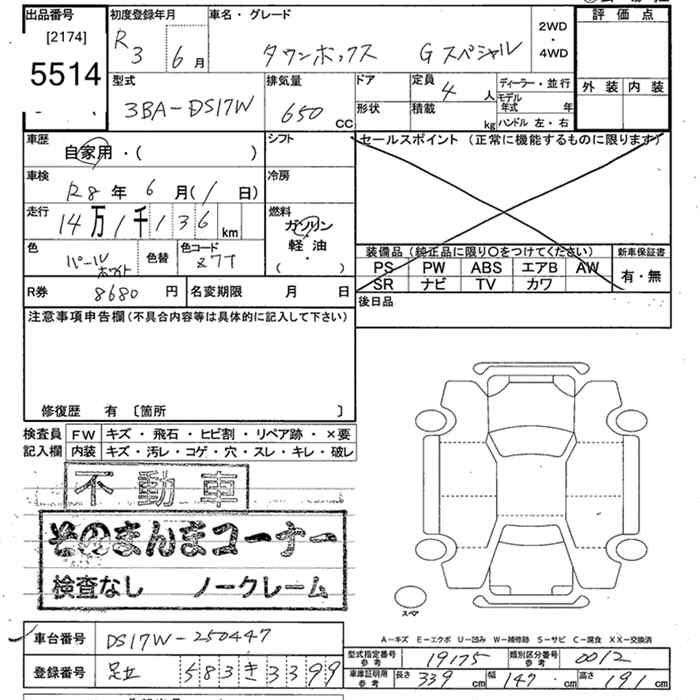 出品番号 初度登録年月 車名・グレード 2WD・4WD 評価点
[2174]
5514
R3 6月 タウンボックス Gスペシャル
型式 排気量 ドア 定員 4人 ディーラー・並行 外装 内装
3BA-DS17W 650cc 形状 積載 kg モデル年式 年
ハンドル 左・右
車歴 シフト セールスポイント (正常に機能するものに限ります)
自家用・( )
車検 冷房
R8年6月(1日)
走行 燃料
14万1千136km ガソリン・軽油・( )
色 パールホワイト 色替 色コード Z7T
装備品(純正品に限り○をつけてください) 新車保証書
PS PW ABS エアB AW 有・無
SR ナビ TV カワ
R券 8680円 名変期限 月 日 後日品
注意事項申告欄(不具合内容等は具体的に記入して下さい)
修復歴 有 〔箇所 〕
検査員 FW キズ・飛石・ヒビ割・リペア跡・×要
記入欄 内装 キズ・汚レ・コゲ・穴・スレ・キレ・破レ
不動車
そのまんまコーナー
検査なし ノークレーム
スペア
A-キズ E-エクボ U-凹み W-補修跡 S-サビ C-腐食 XX-交換済
車台番号 DS17W-250447
型式指定番号 参考 19175 類別区分番号 参考 0012
登録番号 足立 583 き 3399
車庫証明用 参考 長さ 339 cm 幅 147 cm 高さ 191 cm